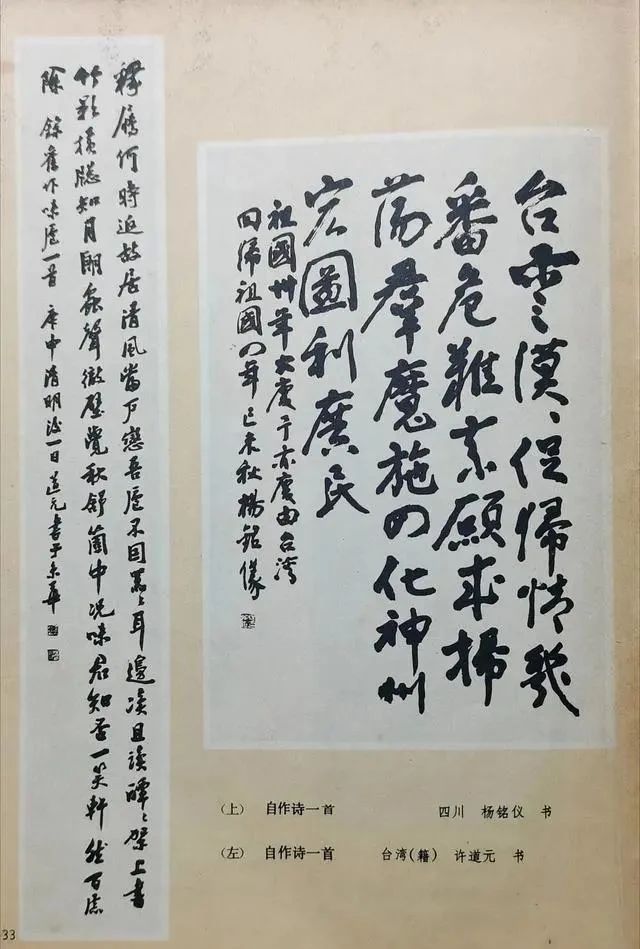 台雲漠、促歸情幾
番危難素願求掃
蕩羣魔施四化神州
宏圖利廣民
祖國卅年大慶予亦慶由台灣
回歸祖國四年 己未秋楊銘儀
何時返故居清風當戶戀吾廬不因耳邊且讀架上書
竹影橫窗知月朗蟲聲徹壁覺秋舒箇中況味君知否一笑軒然百慮
除 錄舊作味廬一首 庚申清明後一日道元書于京華
(上) 自作诗一首 四川 杨铭仪 书
(左) 自作诗一首 台湾(籍) 许道元 书
33